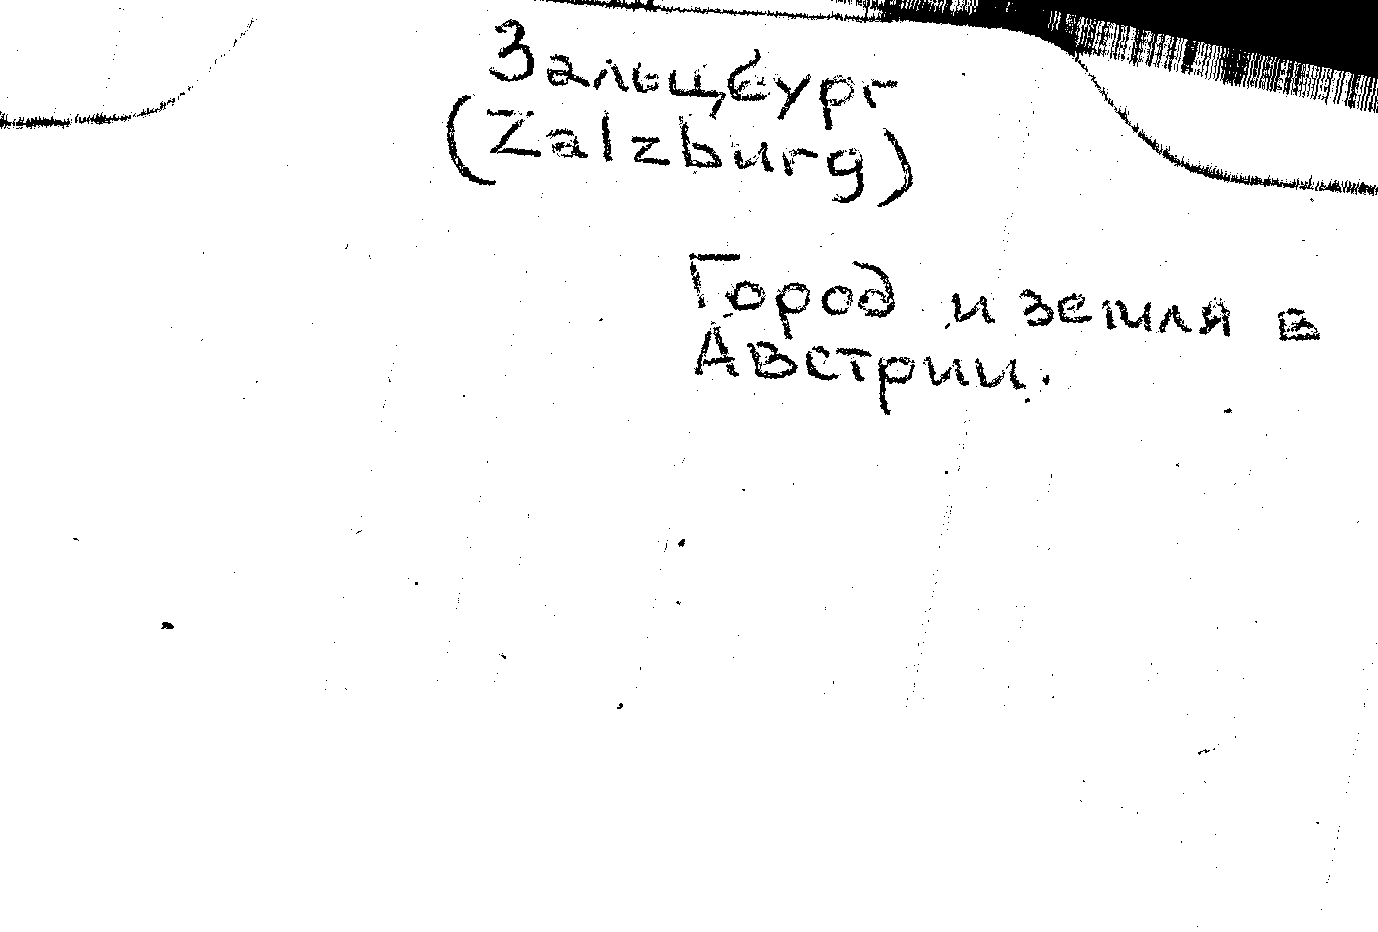 Зальцбург
(Zalzburg)
Город и земля в
Австрии.